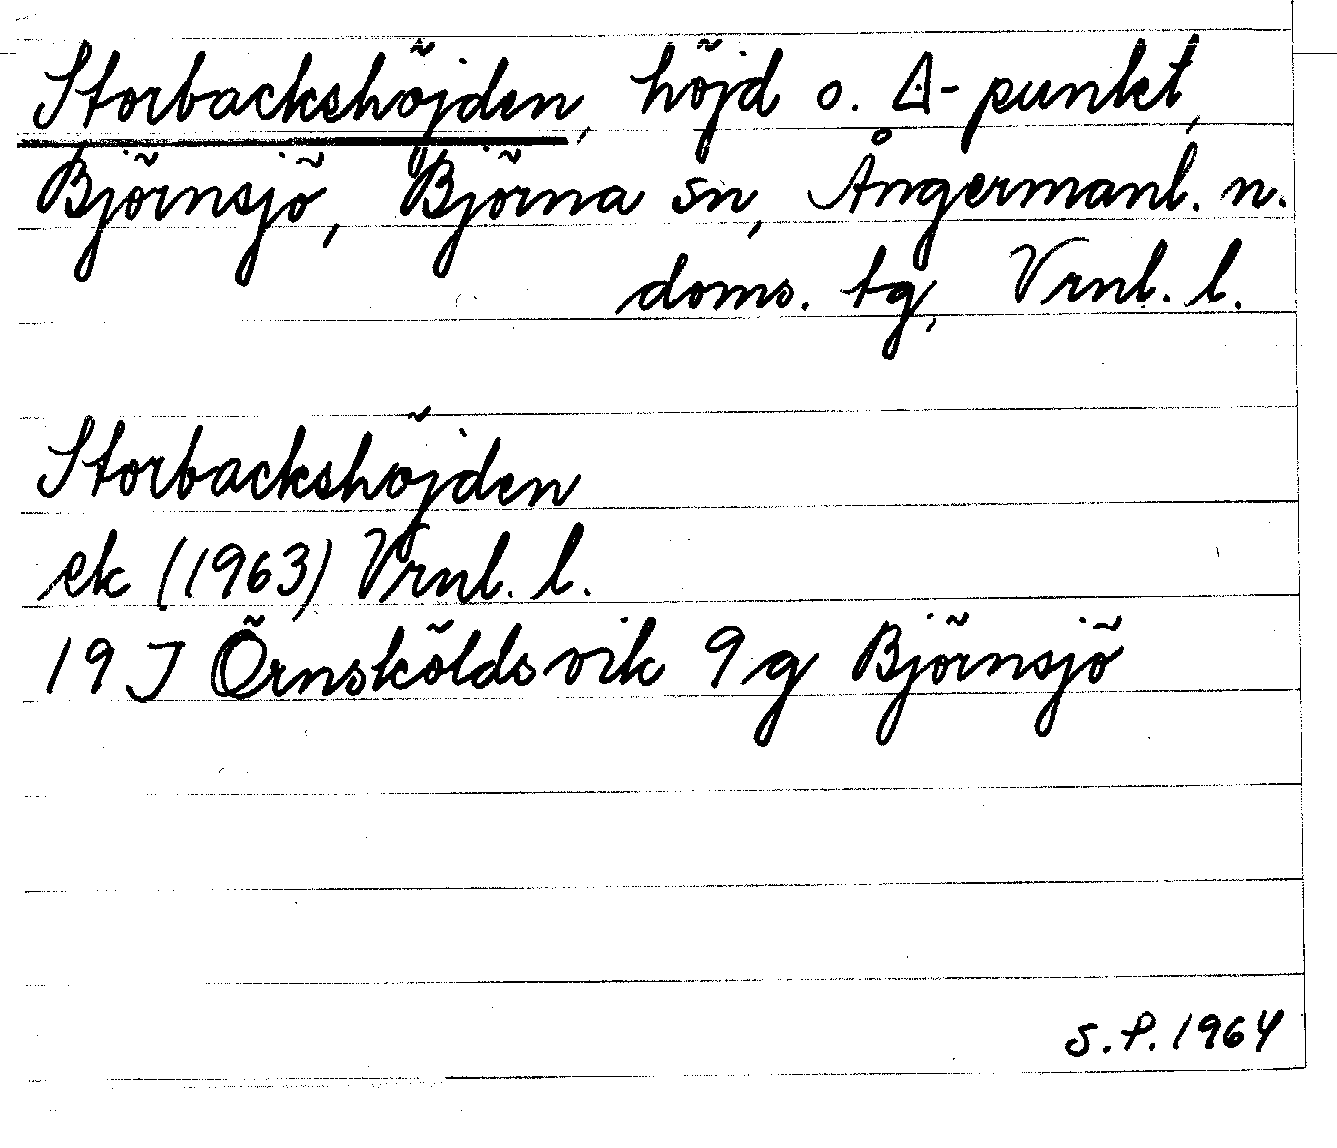 Storbackshöjden, höjd o. Δ-punkt,
Björnsjö, Björna sn, Ångermanl. n.
doms. tg, Vrnl. l.
Storbackshöjden
ek (1963) Vrnl. l.
19 J Örnsköldsvik 9 g Björnsjö
S.P. 1964